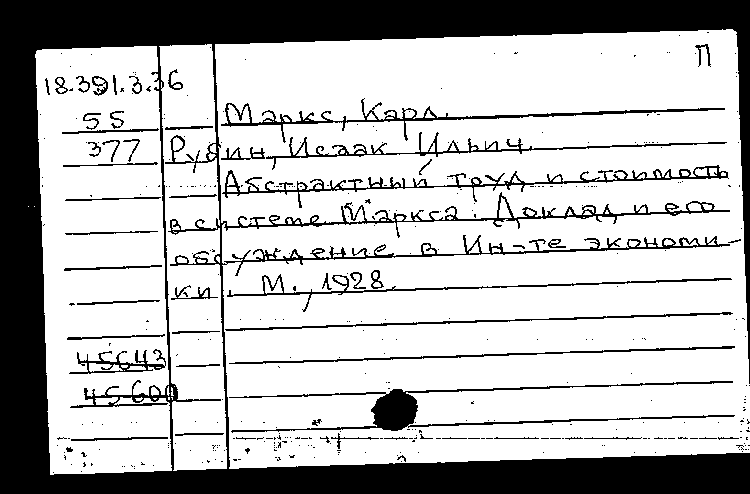 П
18.391.3.36
55 Маркс, Карл.
377 Рубин, Исаак Ильич.
Абстрактный труд и стоимость
в системе Маркса. Доклад и его
обсуждение в Ин-те экономи-
ки. М., 1928.
45643
45600